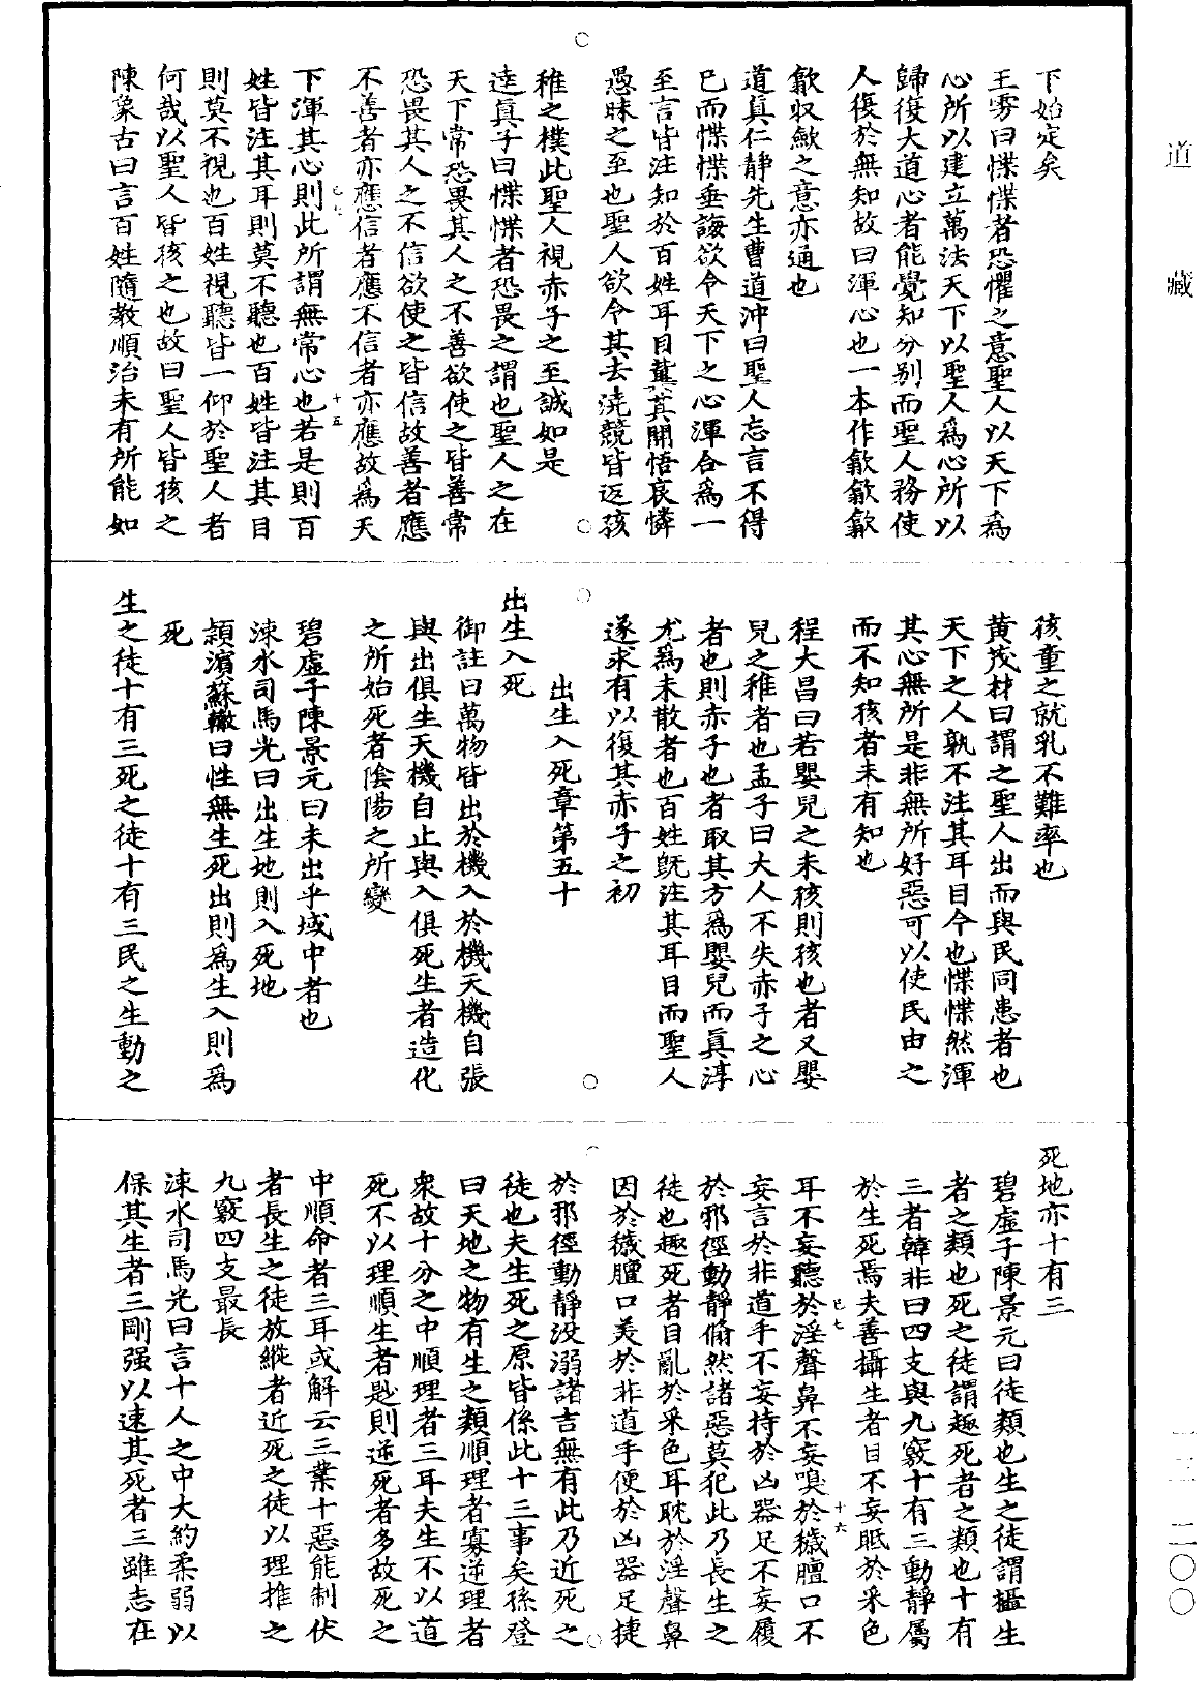 道藏
下始定矣
王雱曰惵惵者恐懼之意聖人以天下爲
心所以建立萬法天下以聖人爲心所以
歸復大道心者能覺知分別而聖人務使
人復於無知故曰渾心也一本作歙歙歙
歙収斂之意亦通也
道真仁靜先生曹道沖曰聖人忘言不得
已而惵惵垂誨欲令天下之心渾合爲一
至言皆注知於百姓耳目冀其開悟哀憐
愚昧之至也聖人欲令其去澆競皆返孩
稚之樸此聖人視赤子之至誠如是
達真子曰惵惵者恐畏之謂也聖人之在
天下常恐畏其人之不善欲使之皆善常
恐畏其人之不信欲使之皆信故善者應
不善者亦應信者應不信者亦應故爲天
下渾其心則此所謂無常心也若是則百
姓皆注其耳則莫不聽也百姓皆注其目
則莫不視也百姓視聽皆一仰於聖人者
何哉以聖人皆孩之也故曰聖人皆孩之
陳象古曰言百姓隨教順治未有所能如
孩童之就乳不難率也
黃茂材曰謂之聖人出而與民同患者也
天下之人孰不注其耳目今也惵惵然渾
其心無所是非無所好惡可以使民由之
而不知孩者未有知也
程大昌曰若嬰兒之未孩則孩也者又嬰
兒之稚者也孟子曰大人不失赤子之心
者也則赤子也者取其方爲嬰兒而真淳
尤爲未散者也百姓旣注其耳目而聖人
遂求有以復其赤子之初
出生入死章第五十
出生入死
御註曰萬物皆出於機入於機天機自張
與出俱生天機自止與入俱死生者造化
之所始死者陰陽之所變
碧虛子陳景元曰未出乎域中者也
涑水司馬光曰出生地則入死地
潁濱蘇轍曰性無生死出則爲生入則爲
死
生之徒十有三死之徒十有三民之生動之
死地亦十有三
碧虛子陳景元曰徒類也生之徒謂攝生
者之類也死之徒謂趣死者之類也十有
三者韓非曰四支與九竅十有三動靜屬
於生死焉夫善攝生者目不妄眂於釆色
耳不妄聽於淫聲鼻不妄嗅於穢膻口不
妄言於非道手不妄持於凶器足不妄履
於邪徑動靜翛然諸惡莫犯此乃長生之
徒也趣死者目亂於釆色耳耽於淫聲鼻
因於穢膻口美於非道手便於凶器足捷
於邪徑動靜没溺諸吉無有此乃近死之
徒也夫生死之原皆係此十三事矣孫登
曰天地之物有生之類順理者寡逆理者
衆故十分之中順理者三耳夫生不以道
死不以理順生者尠則逆死者多故死之
中順命者三耳或解云三業十惡能制伏
者長生之徒放縱者近死之徒以理推之
九竅四支最長
涑水司馬光曰言十人之中大約柔弱以
保其生者三剛强以速其死者三雖志在
已七
十五
已七
十六
一三—二〇〇